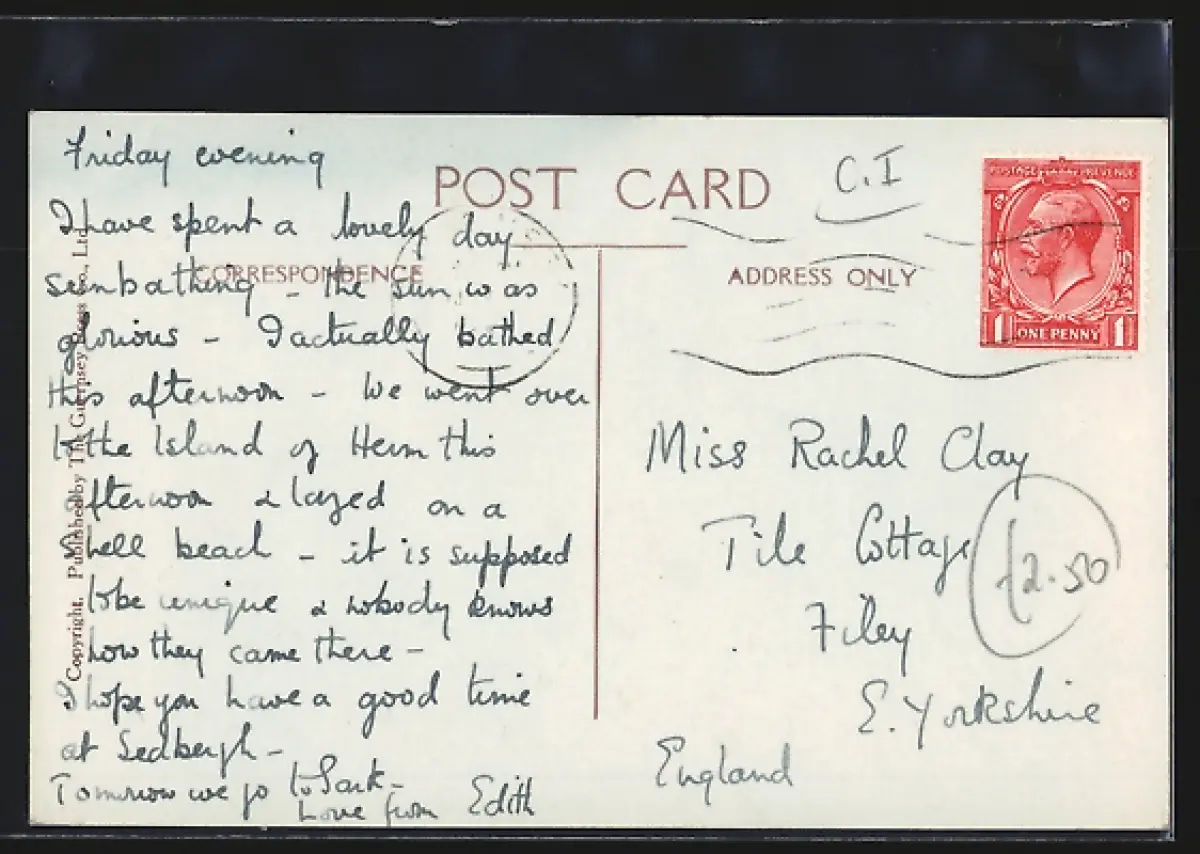 Friday evening
I have spent a lovely day
sunbathing - the sun was
glorious - I actually bathed
this afternoon - We went over
to the Island of Herm this
afternoon & lazed on a
shell beach - it is supposed
to be unique & nobody knows
how they came there -
I hope you have a good time
at Sedbergh -
Tomorrow we go to Sark -
Love from Edith
Copyright. Published by The Guernsey Press Co., Ltd.
POST CARD
CORRESPONDENCE
ADDRESS ONLY
C.I
POSTAGE REVENUE
1 ONE PENNY 1
Miss Rachel Clay
Tile Cottage
Filey
E. Yorkshire
England
£2.50